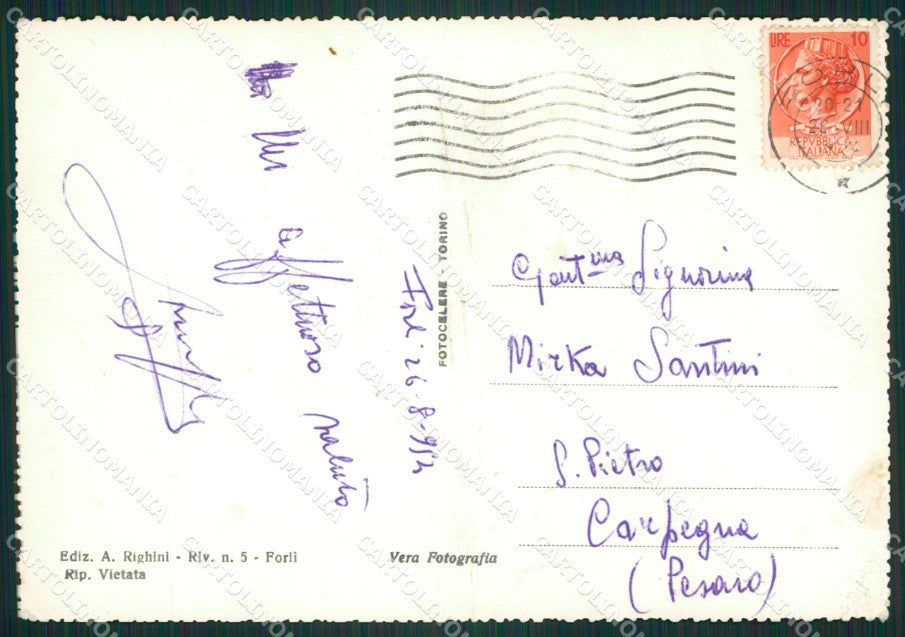 Un affettuoso saluto
Forlì 26-8-954
FOTOCELERE - TORINO
Gent.ma Signorina
Mirka Santini
S. Pietro
Carpegna
(Pesaro)
LIRE 10
REPVBBLICA
ITALIANA
20-21
VIII
Ediz. A. Righini - Riv. n. 5 - Forlì
Rip. Vietata
Vera Fotografia
CARTOLINOMANIA